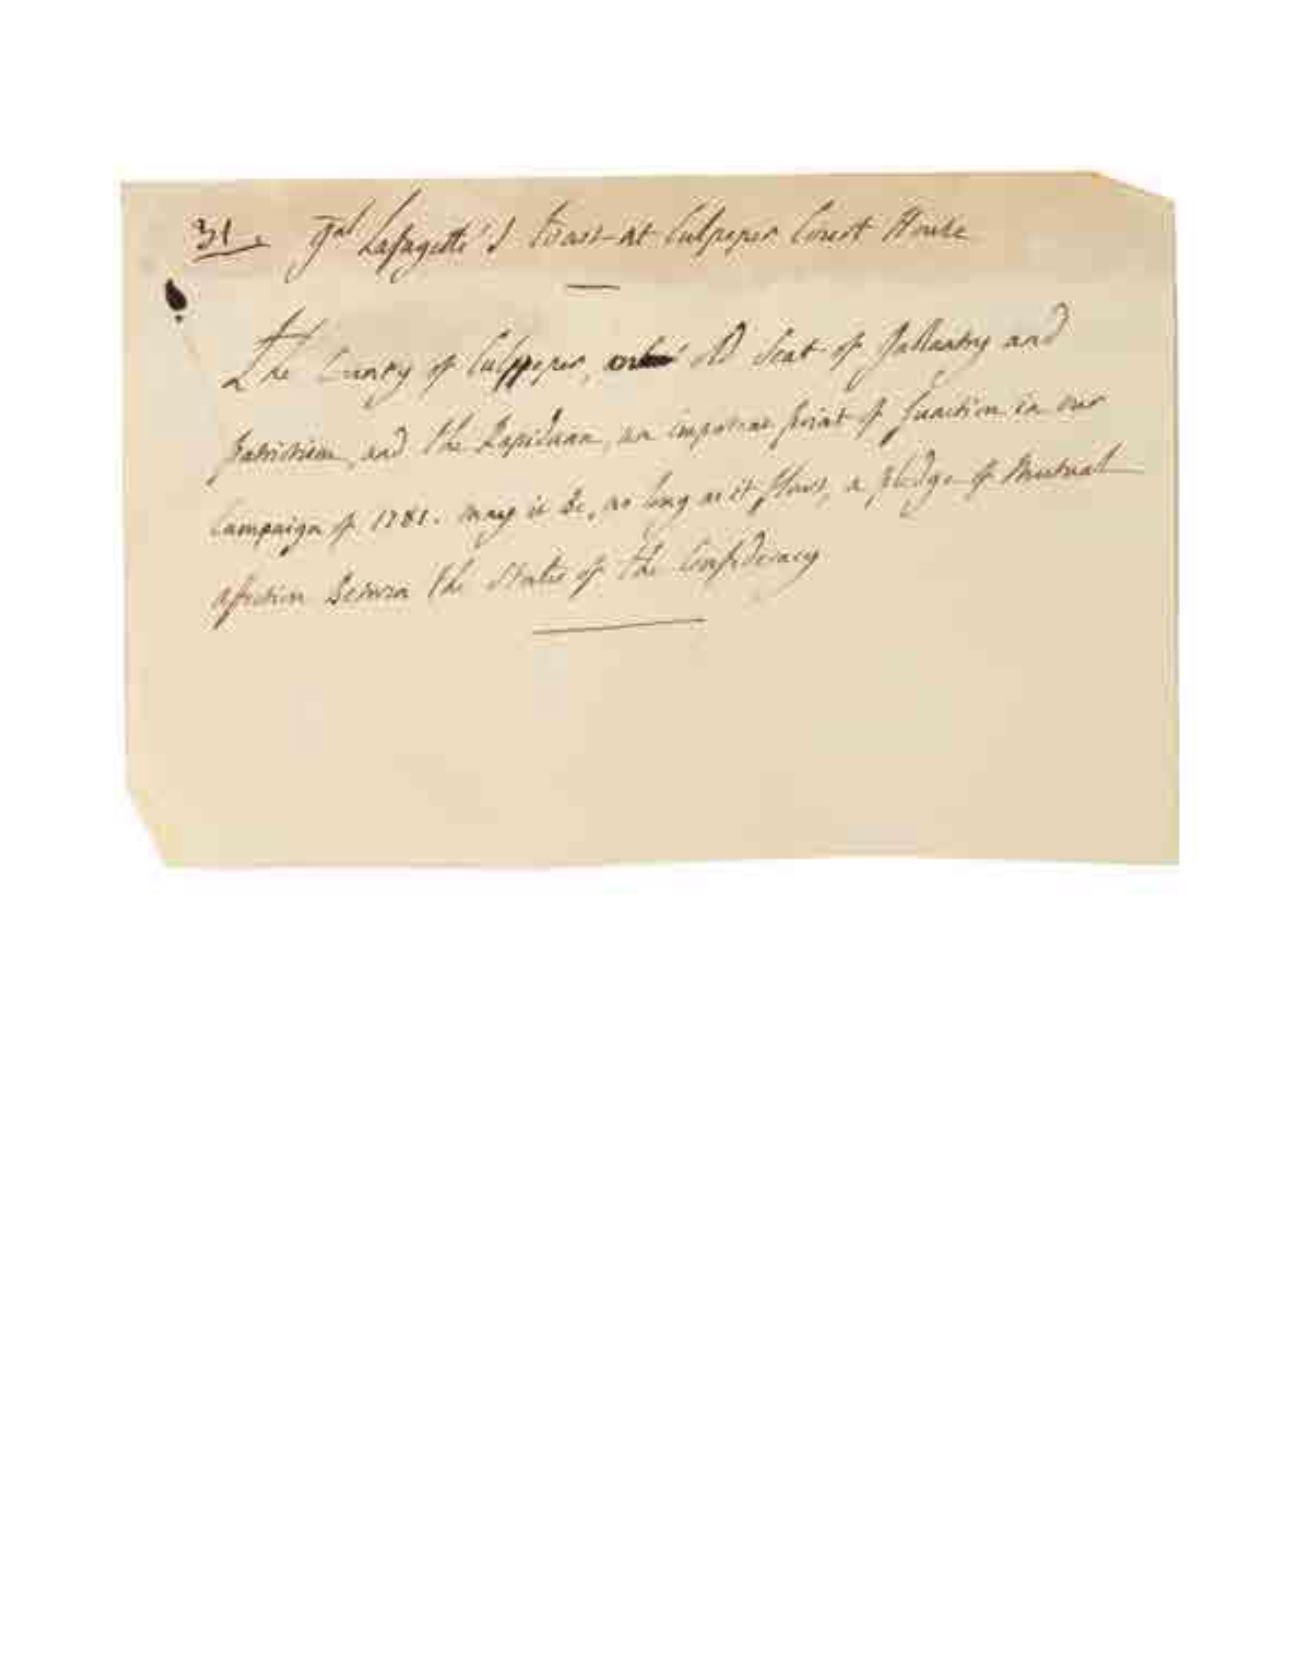 31. Gal Lafayette's toast at Culpeper Court House
The County of Culppeper, old Seat of Gallantry and
patriotism, and the Rapidann, an important point of junction in our
Campaign of 1781. may it be, as long as it flows, a pledge of Mutual
affection Between the States of the Confederacy